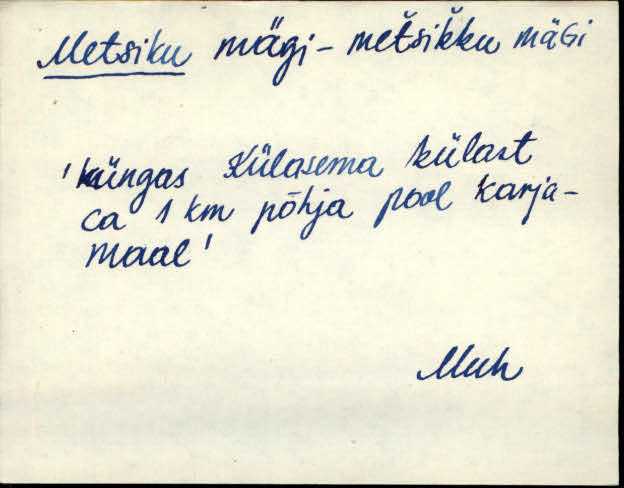 Metsiku mägi – metšikku mäGi
'küngas Külasema külast
ca 1 km põhja pool karja-
maal'
Muh